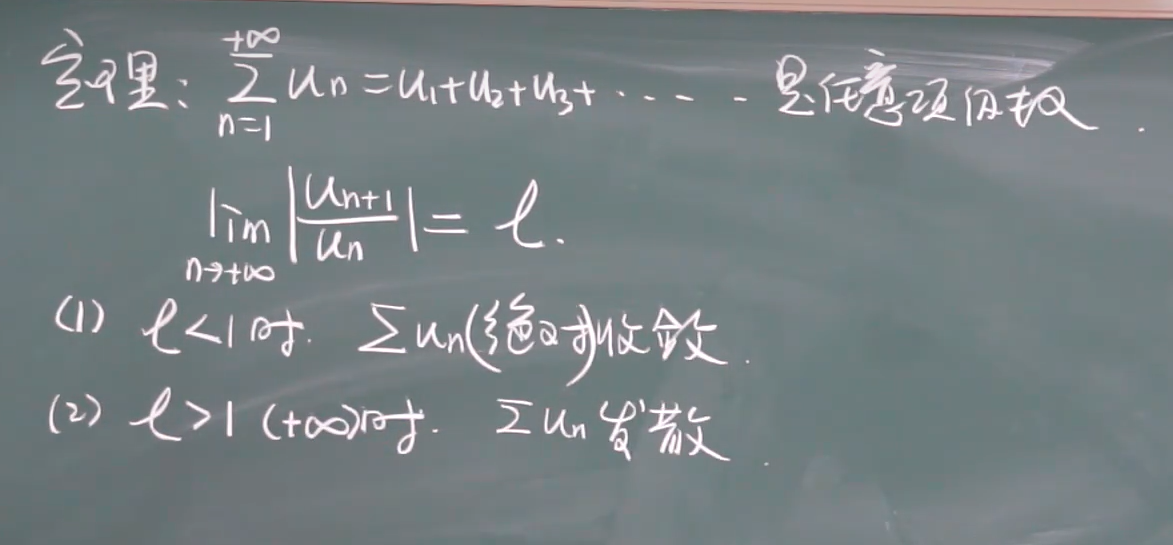 定理: \sum_{n=1}^{+∞} u_n = u_1+u_2+u_3+ ····· 是任意项级数.
lim_{n→+∞} |u_{n+1}/u_n| = l.
(1) l<1时. ∑u_n(绝对)收敛.
(2) l>1 (+∞)时. ∑u_n发散.